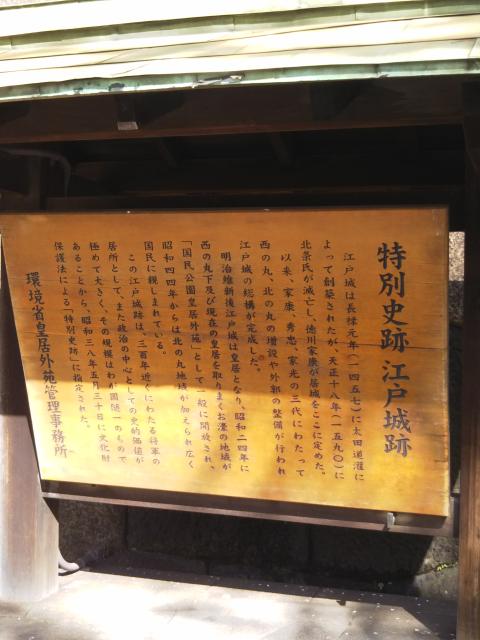 特別史跡 江戸城跡
江戸城は長禄元年（一四五七）に太田道灌に
よって創築されたが、天正十八年（一五九〇）に
北条氏が滅亡し、徳川家康が居城をここに定めた。
以来、家康、秀忠、家光の三代にわたって
西の丸、北の丸の増設や外郭の整備が行われ
江戸城の総構が完成した。
明治維新後江戸城は皇居となり、昭和二四年に
西の丸下及び現在の皇居を取りまくお濠の地域が
「国民公園皇居外苑」として一般に開放され、
昭和四四年からは北の丸地域が加えられ広く
国民に親しまれている。
この江戸城跡は、三百年近くにわたる将軍の
居所として、また政治の中心としての史的価値が
極めて大きく、その規模はわが国随一のもので
あることから、昭和三八年五月三十日に文化財
保護法による「特別史跡」に指定された。
環境省皇居外苑管理事務所